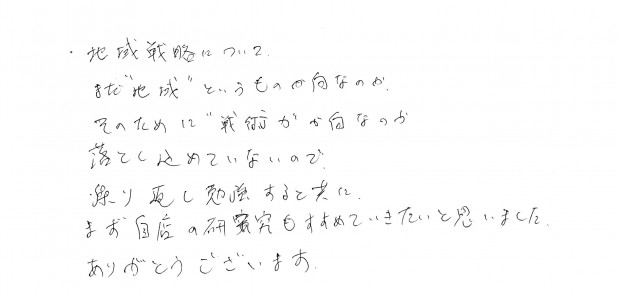 ・地域戦略について.
まだ"地域"というものが何なのか.
そのために"戦術"が何なのか
落とし込めていないので.
繰り返し勉強すると共に.
まず自店の研究もすすめていきたいと思いました.
ありがとうございます.